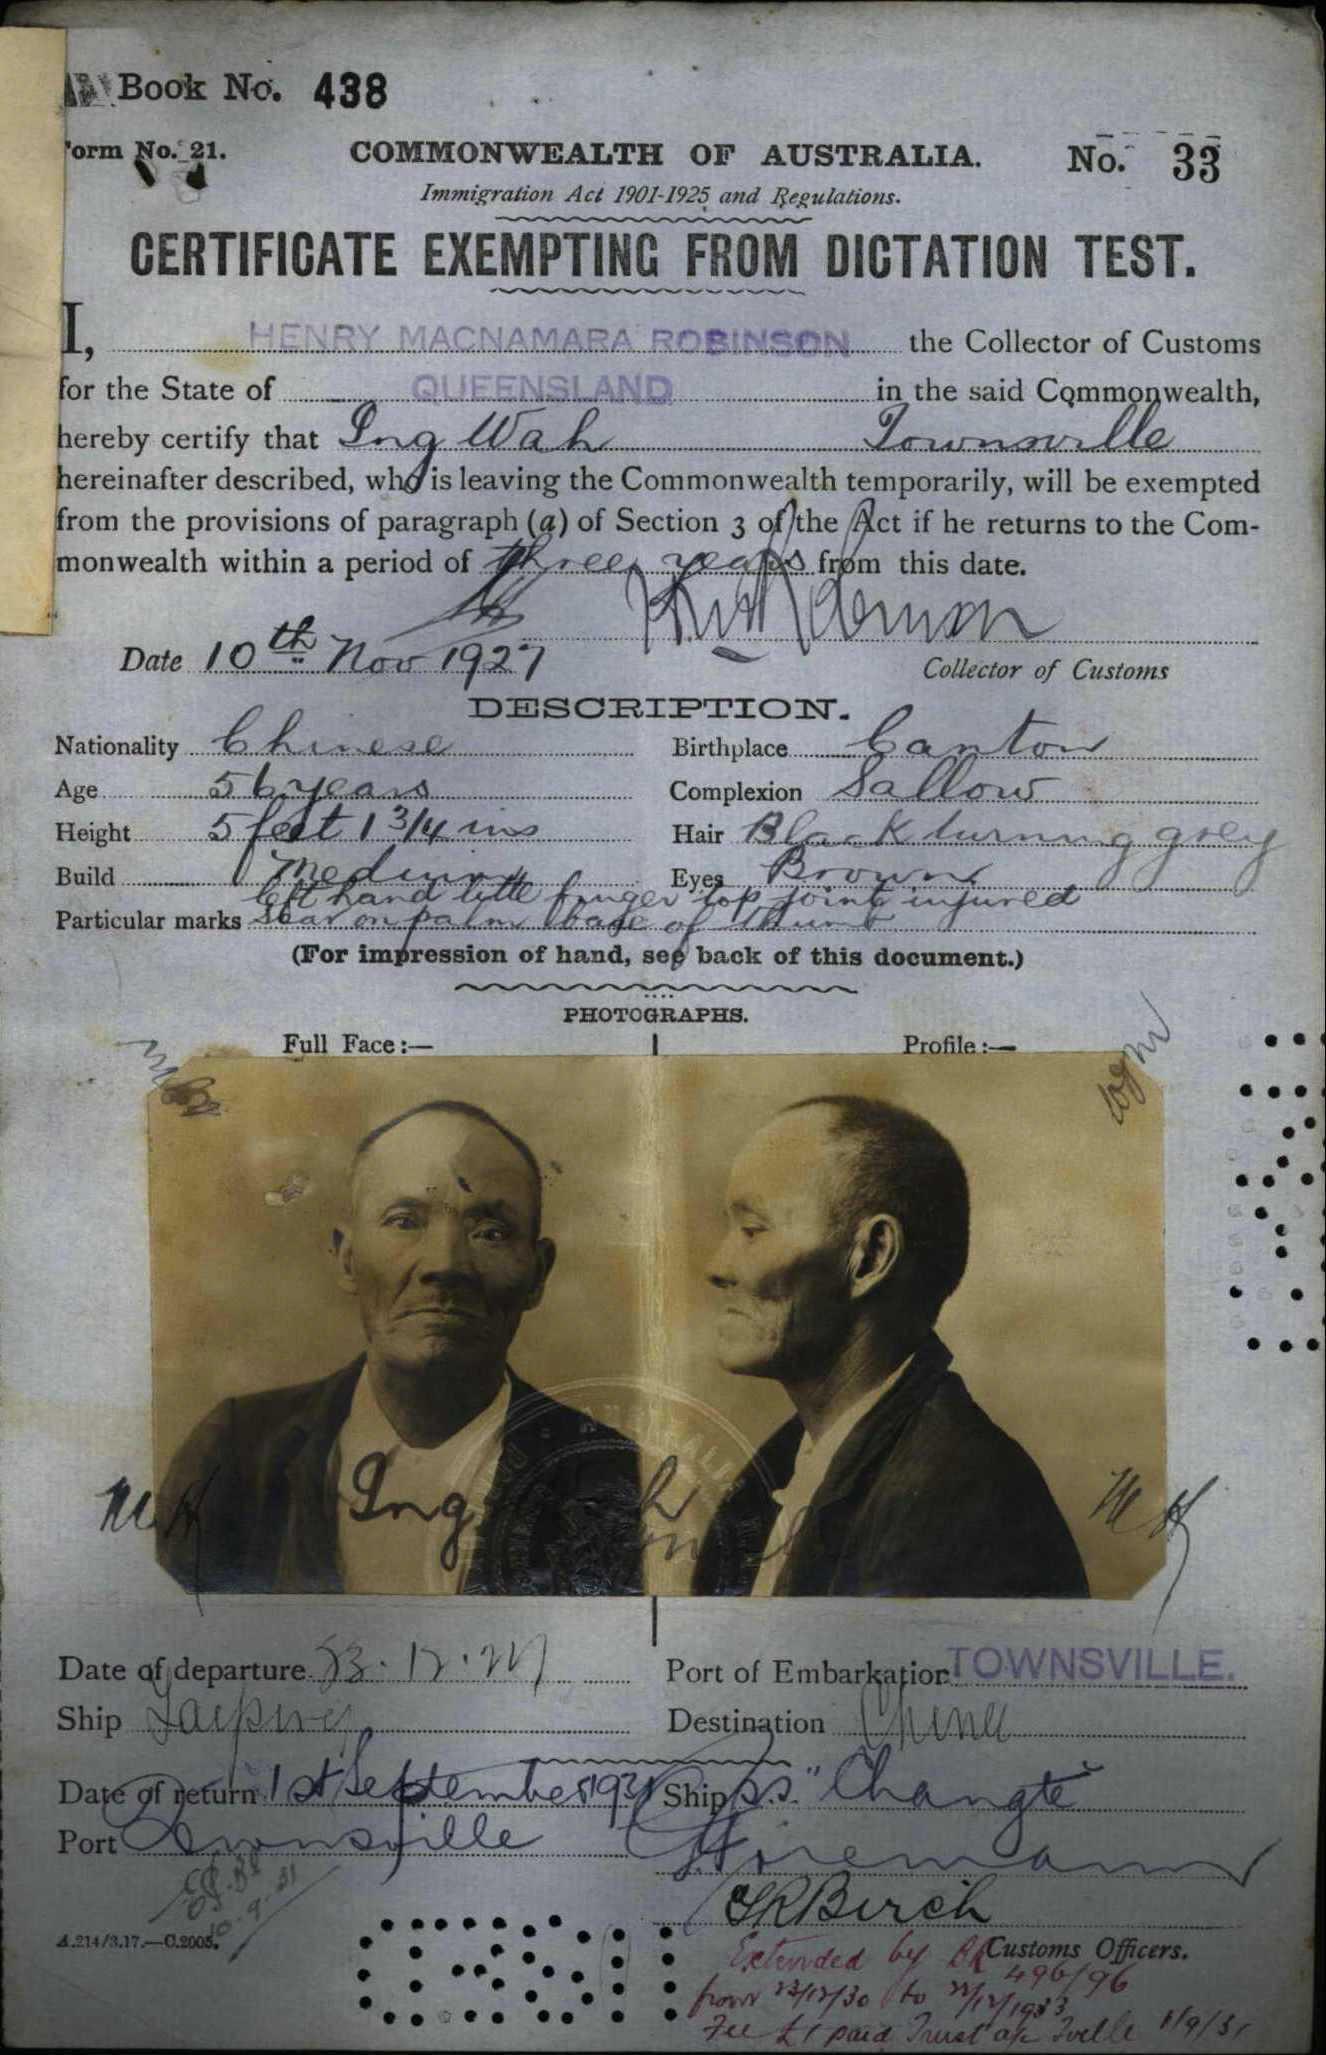 Book No. 438
Form No. 21.
COMMONWEALTH OF AUSTRALIA.
No. 33
Immigration Act 1901-1925 and Regulations.
CERTIFICATE EXEMPTING FROM DICTATION TEST.
I, HENRY MACNAMARA ROBINSON the Collector of Customs
for the State of QUEENSLAND in the said Commonwealth,
hereby certify that Ing Wah Townsville
hereinafter described, who is leaving the Commonwealth temporarily, will be exempted
from the provisions of paragraph (a) of Section 3 of the Act if he returns to the Com-
monwealth within a period of three years from this date.
Date 10th Nov 1927
Collector of Customs
DESCRIPTION.
Nationality Chinese Birthplace Canton
Age 56 years Complexion Sallow
Height 5 feet 1 3/4 ins Hair Black turning grey
Build Medium Eyes Brown
left hand little finger top joint injured
Particular marks scar on palm base of thumb
(For impression of hand, see back of this document.)
PHOTOGRAPHS.
Full Face:— Profile:—
Ing
Date of departure 23.12.27 Port of Embarkation TOWNSVILLE.
Ship Taiping Destination China
Date of return 1st September 1931 Ship s.s. "Changte"
Port Townsville
SRBirch
A.214/3.17.—C.2005. 10.9.31
Customs Officers.
Extended by 496/96
from 23/12/30 to 22/12/1933
Fee £1 paid Trust a/c Tville 1/9/31